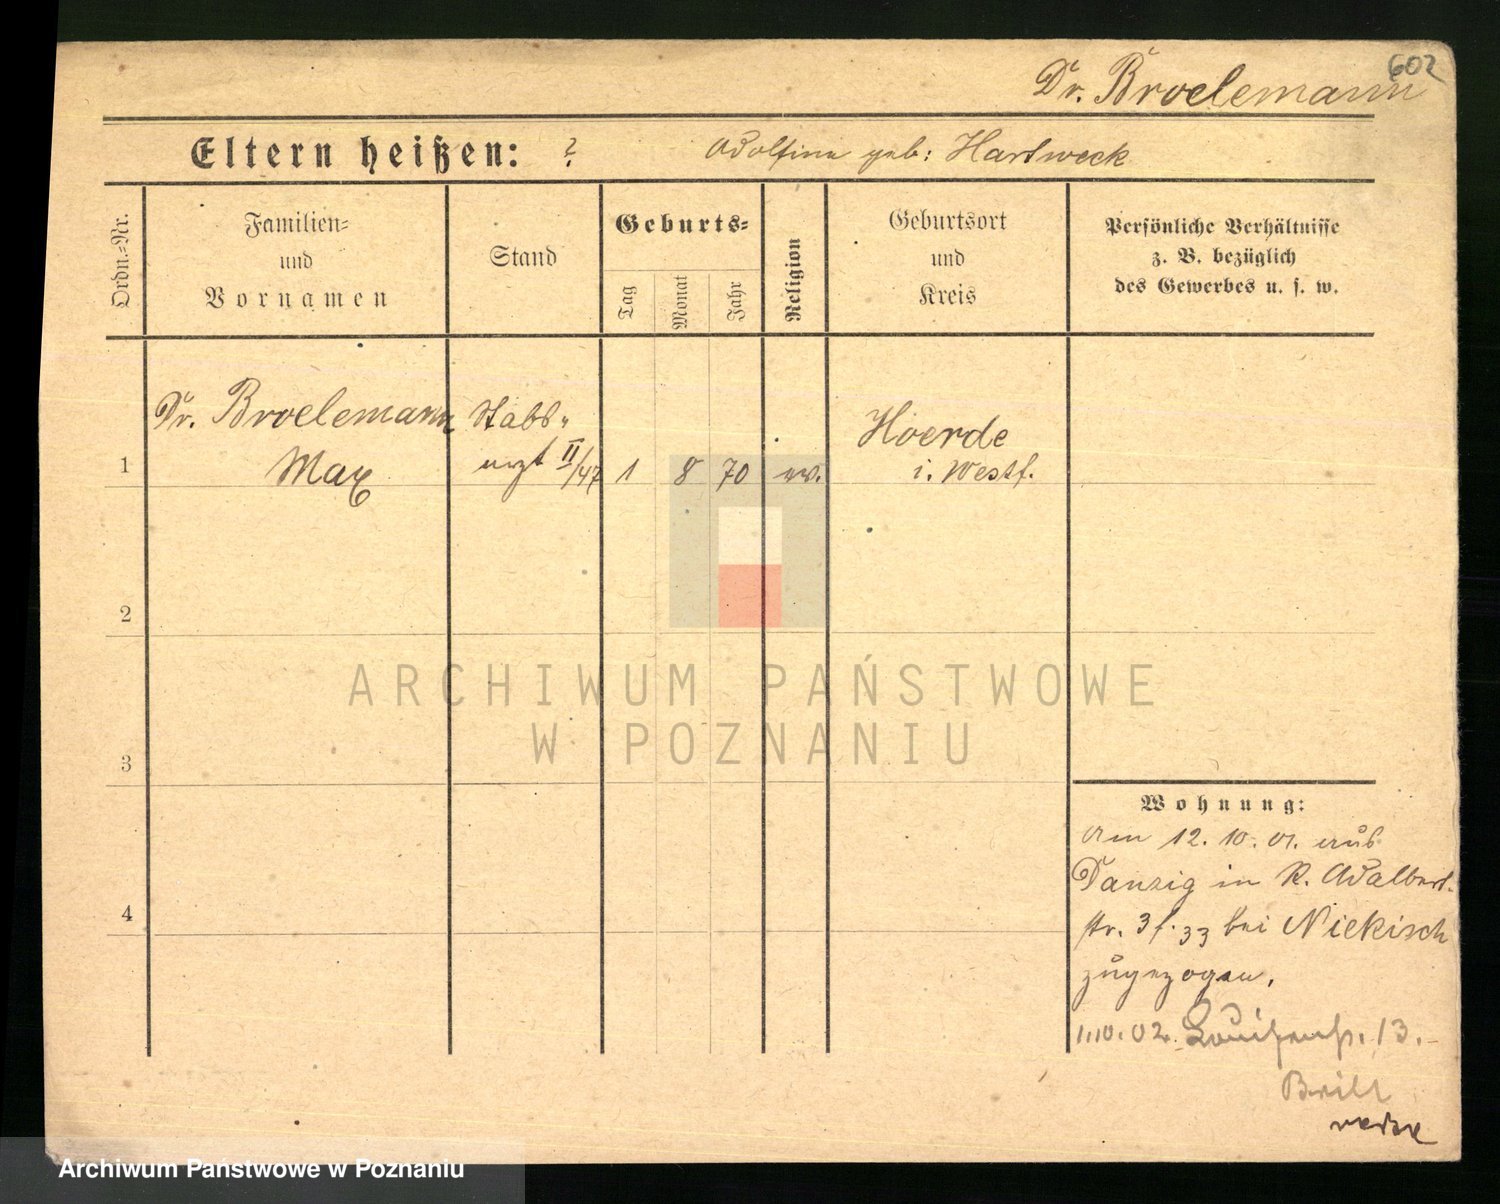 602
Dr. Broelemann
Eltern heißen: ? Adolfine geb: Hartweck
Ordn.-Nr.
Familien-
und
Vornamen
Stand
Geburts-
Tag
Monat
Jahr
Religion
Geburtsort
und
Kreis
Persönliche Verhältnisse
z. B. bezüglich
des Gewerbes u. s. w.
1
Dr. Broelemann
Max
Stabs-
arzt II/47
1 8 70 ev.
Hoerde
i. Westf.
2
3
4
Wohnung:
Am 12. 10. 01. aus
Danzig in K. Adalbert-
str. 3 f. 33 bei Niekisch
zugezogen.
1.10.02. Louisenstr. 13.
Brill
ARCHIWUM PAŃSTWOWE
W POZNANIU
Archiwum Państwowe w Poznaniu